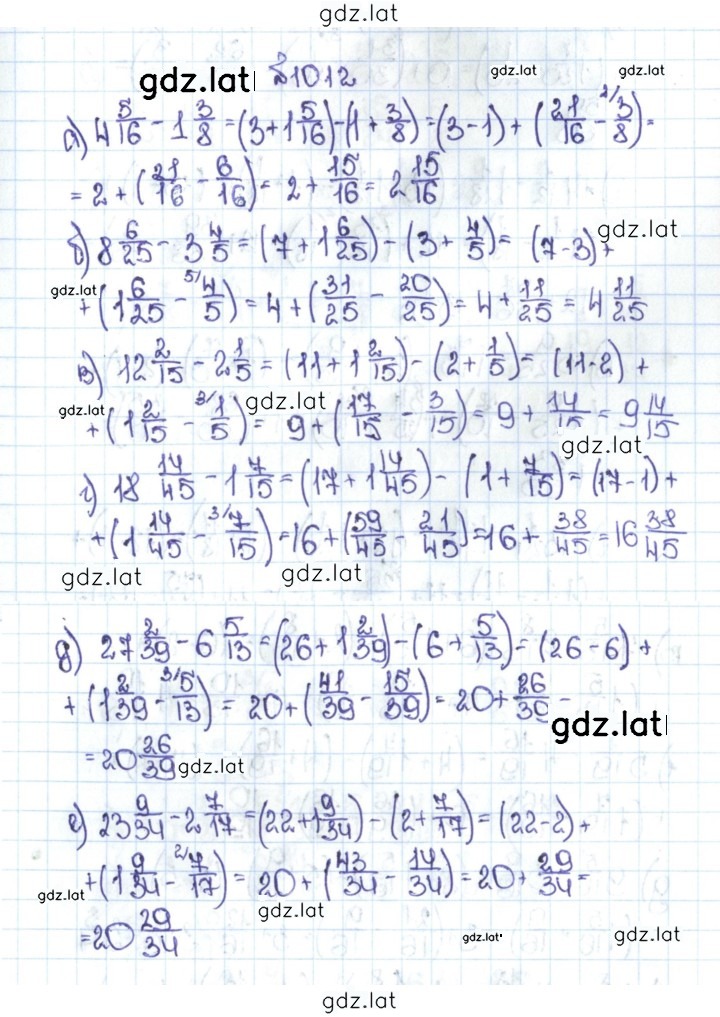 gdz.lat
gdz.lat №1012 gdz.lat gdz.lat
а) 4 5/16 - 1 3/8 = (3 + 1 5/16) - (1 + 3/8) = (3 - 1) + (21/16 - 2/ 3/8) =
= 2 + (21/16 - 6/16) = 2 + 15/16 = 2 15/16
б) 8 6/25 - 3 4/5 = (7 + 1 6/25) - (3 + 4/5) = (7 - 3) + gdz.lat
gdz.lat + (1 6/25 - 5/ 4/5) = 4 + (31/25 - 20/25) = 4 + 11/25 = 4 11/25
в) 12 2/15 - 2 1/5 = (11 + 1 2/15) - (2 + 1/5) = (11 - 2) +
gdz.lat + (1 2/15 - 3/ 1/5) = gdz.lat 9 + (17/15 - 3/15) = 9 + 14/15 = 9 14/15
gdz.lat
г) 18 14/45 - 1 7/15 = (17 + 1 14/45) - (1 + 7/15) = (17 - 1) +
+ (1 14/45 - 3/ 7/15) = 16 + (59/45 - 21/45) = 16 + 38/45 = 16 38/45
gdz.lat gdz.lat
д) 27 2/39 - 6 5/13 = (26 + 1 2/39) - (6 + 5/13) = (26 - 6) +
+ (1 2/39 - 3/ 5/13) = 20 + (41/39 - 15/39) = 20 + 26/39 =
gdz.lat
= 20 26/39 gdz.lat
е) 23 9/34 - 2 7/17 = (22 + 1 9/34) - (2 + 7/17) = (22 - 2) +
+ (1 9/34 - 2/ 7/17) = 20 + (43/34 - 14/34) = 20 + 29/34 =
gdz.lat gdz.lat
= 20 29/34 gdz.lat gdz.lat
gdz.lat